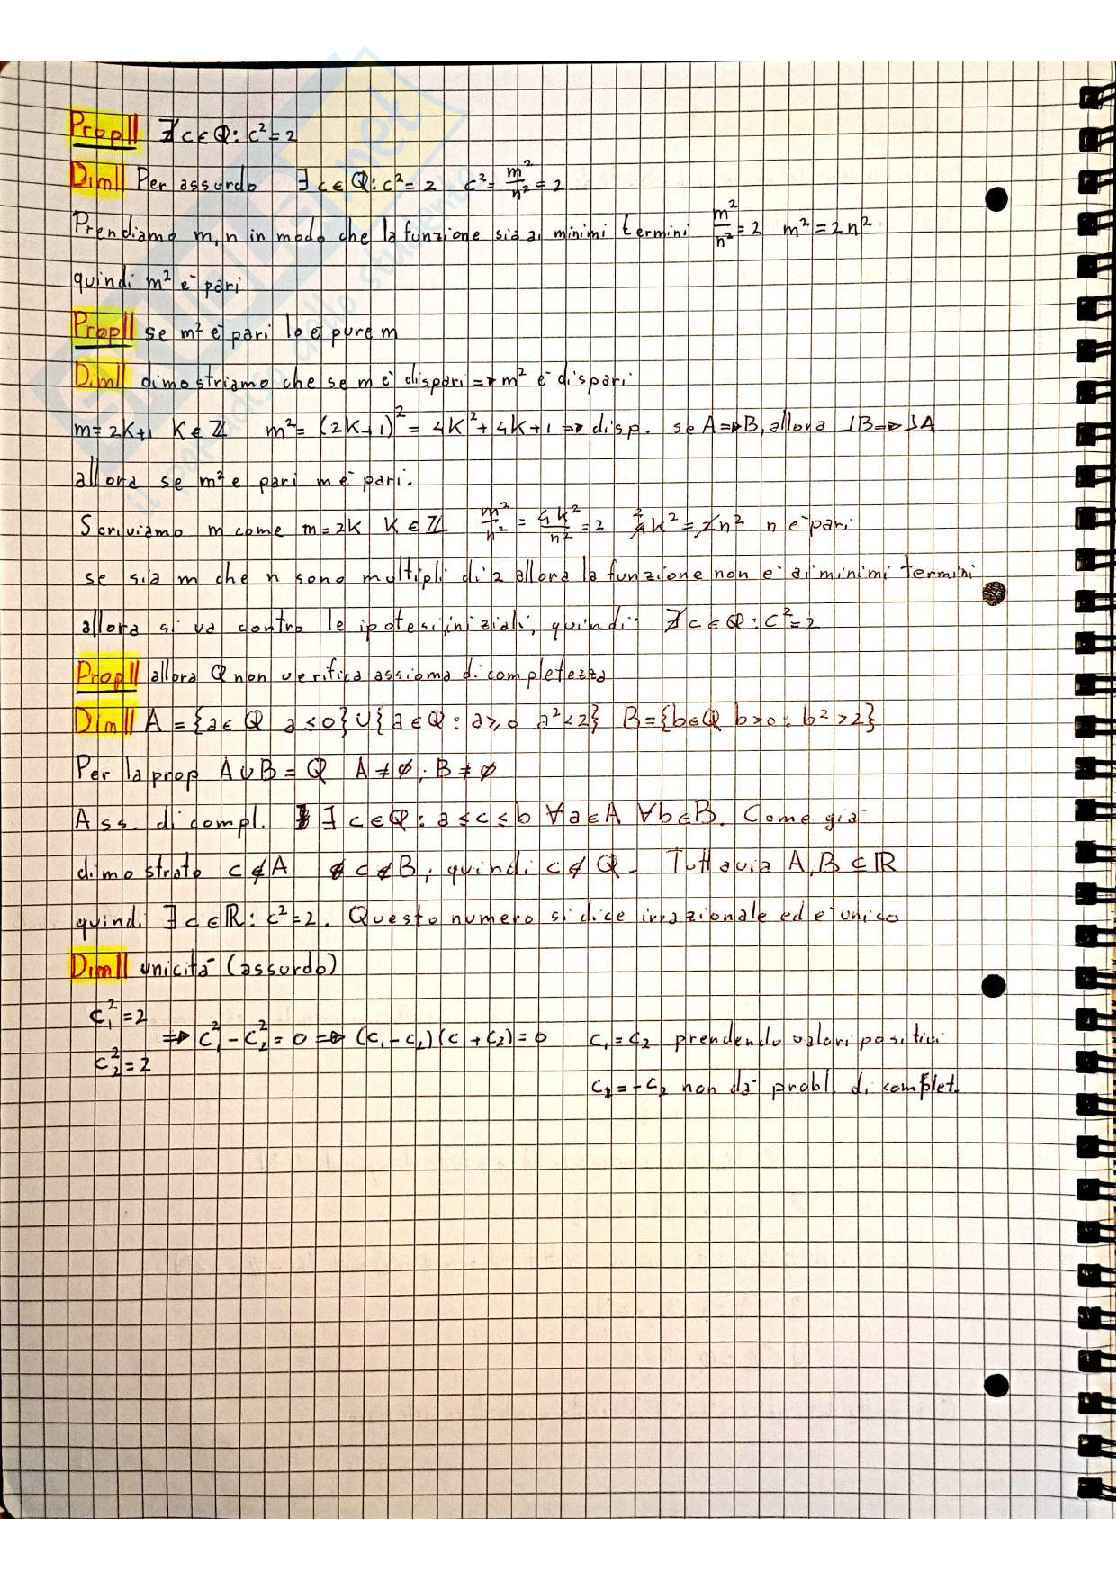 Prop|| ∄ c ∈ ℚ : c² = 2
Dim|| Per assurdo ∃ c ∈ ℚ : c² = 2 c² = m²/n² = 2
Prendiamo m, n in modo che la funzione sia ai minimi termini m²/n² = 2 m² = 2n²
quindi m² è pari
Prop|| se m² è pari lo è pure m
Dim|| dimostriamo che se m è dispari => m² è dispari
m = 2K+1 K ∈ ℤ m² = (2K+1)² = 4K² + 4K + 1 => disp. se A => B, allora ⅂B => ⅂A
allora se m² e pari m è pari.
Scriviamo m come m = 2K K ∈ ℤ m²/n² = 4K²/n² = 2 4K² = 2n² n è pari
se sia m che n sono multipli di 2 allora la funzione non è ai minimi termini
allora si va contro le ipotesi iniziali, quindi: ∄ c ∈ ℚ : c² = 2
Prop|| allora ℚ non verifica assioma di completezza
Dim|| A = {a ∈ ℚ a ≤ 0} ∪ {a ∈ ℚ : a ≥ 0 a² < 2} B = {b ∈ ℚ b > 0 : b² > 2}
Per la prop A ∪ B = ℚ A ≠ ∅. B ≠ ∅
Ass. di compl. ∃ c ∈ ℚ : a ≤ c ≤ b ∀ a ∈ A ∀ b ∈ B. Come già
dimostrato c ∉ A c ∉ B, quindi c ∉ ℚ. Tuttavia A, B ⊆ ℝ
quindi ∃ c ∈ ℝ : c² = 2. Questo numero si dice irrazionale ed è unico
Dim|| unicità (assurdo)
c₁² = 2
=> c₁² - c₂² = 0 => (c₁ - c₂)(c + c₂) = 0 c₁ = c₂ prendendo valori positivi
c₂² = 2
c₁ = -c₂ non dà probl. di complet.